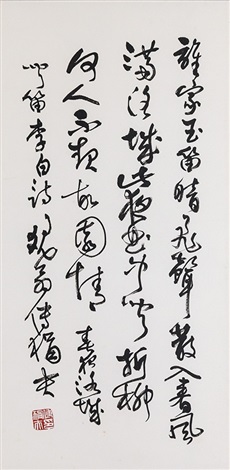 誰家玉笛暗飛聲散入春風
滿洛城此夜曲中聞折柳
何人不起故園情 春夜洛城
聞笛李白詩 翁傅狷夫